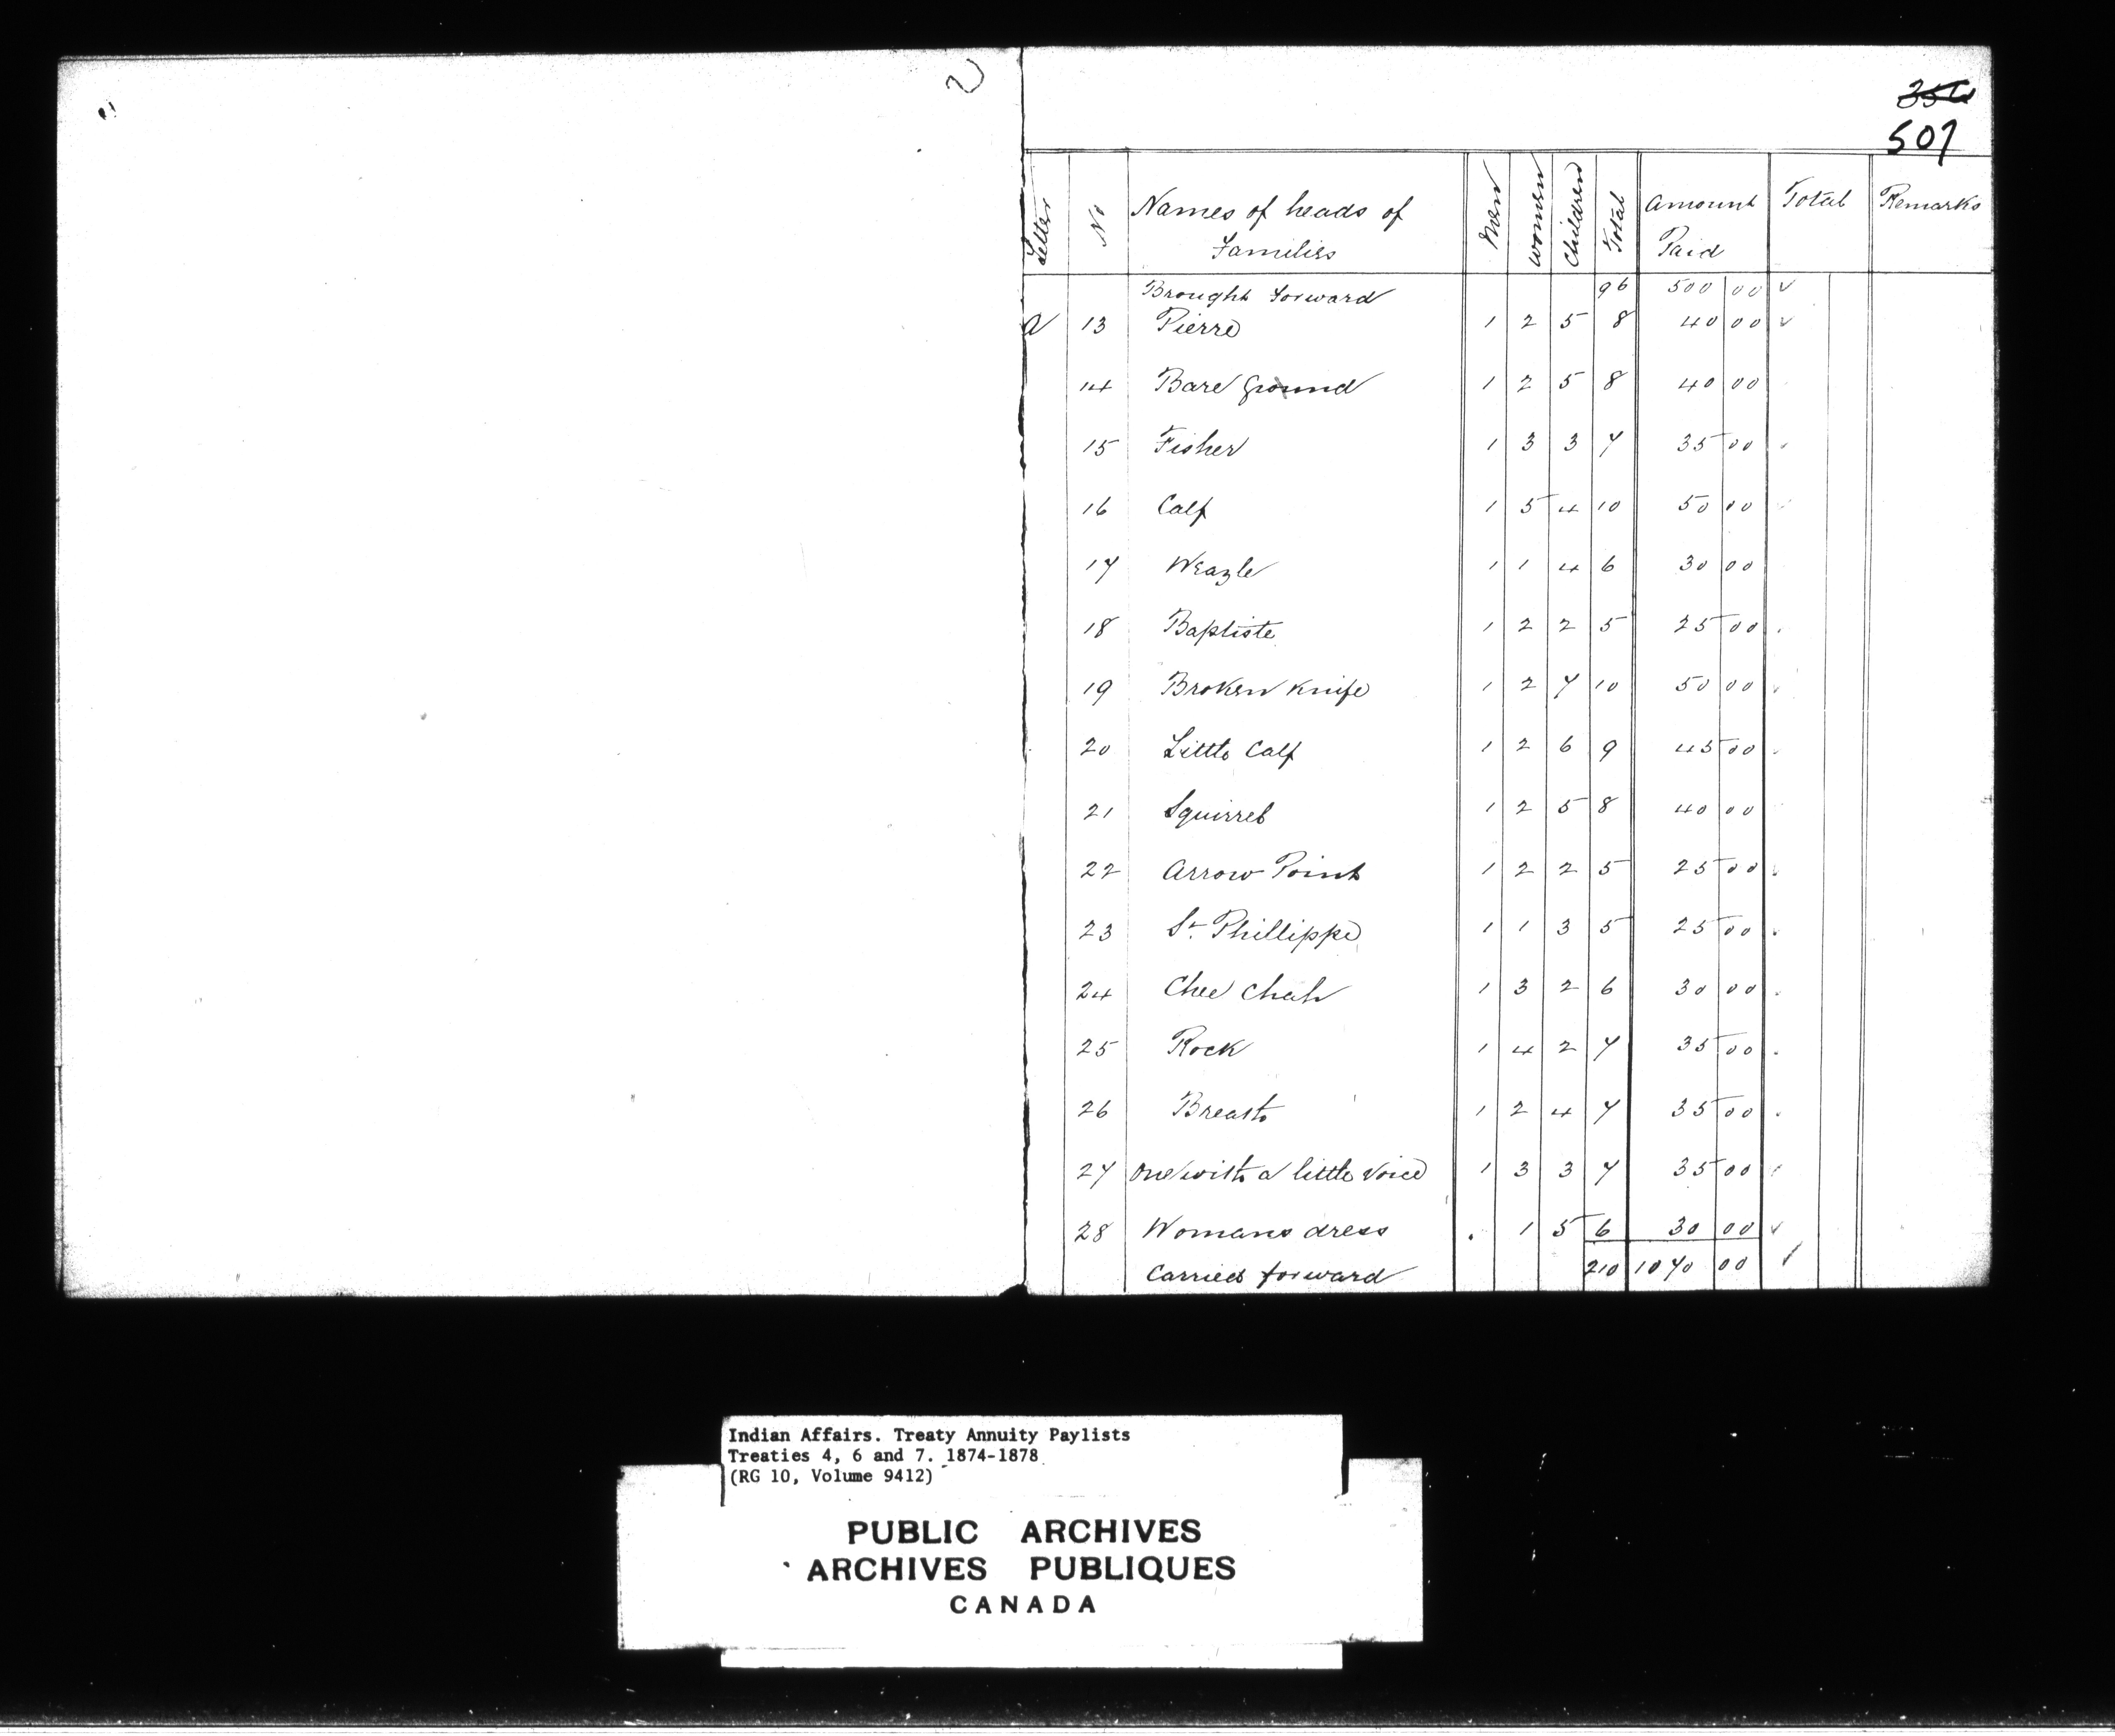 2
356
507
Letter No Names of heads of Families Men Women Children Total Amount Paid Total Remarks
Brought forward 96 500 00 ✓
A 13 Pierre 1 2 5 8 40 00 ✓
14 Bare Ground 1 2 5 8 40 00
15 Fisher 1 3 3 7 35 00
16 Calf 1 5 4 10 50 00
17 Weazle 1 1 4 6 30 00
18 Baptiste 1 2 2 5 25 00
19 Broken Knife 1 2 7 10 50 00
20 Little Calf 1 2 6 9 45 00
21 Squirrel 1 2 5 8 40 00
22 Arrow Point 1 2 2 5 25 00
23 St. Phillippe 1 1 3 5 25 00
24 Chee Chah 1 3 2 6 30 00
25 Rock 1 4 2 7 35 00
26 Breast 1 2 4 7 35 00
27 One with a little voice 1 3 3 7 35 00
28 Womans dress . 1 5 6 30 00 ✓
Carried forward 210 1070 00 ✓
Indian Affairs. Treaty Annuity Paylists
Treaties 4, 6 and 7. 1874-1878
(RG 10, Volume 9412)
PUBLIC ARCHIVES
ARCHIVES PUBLIQUES
CANADA